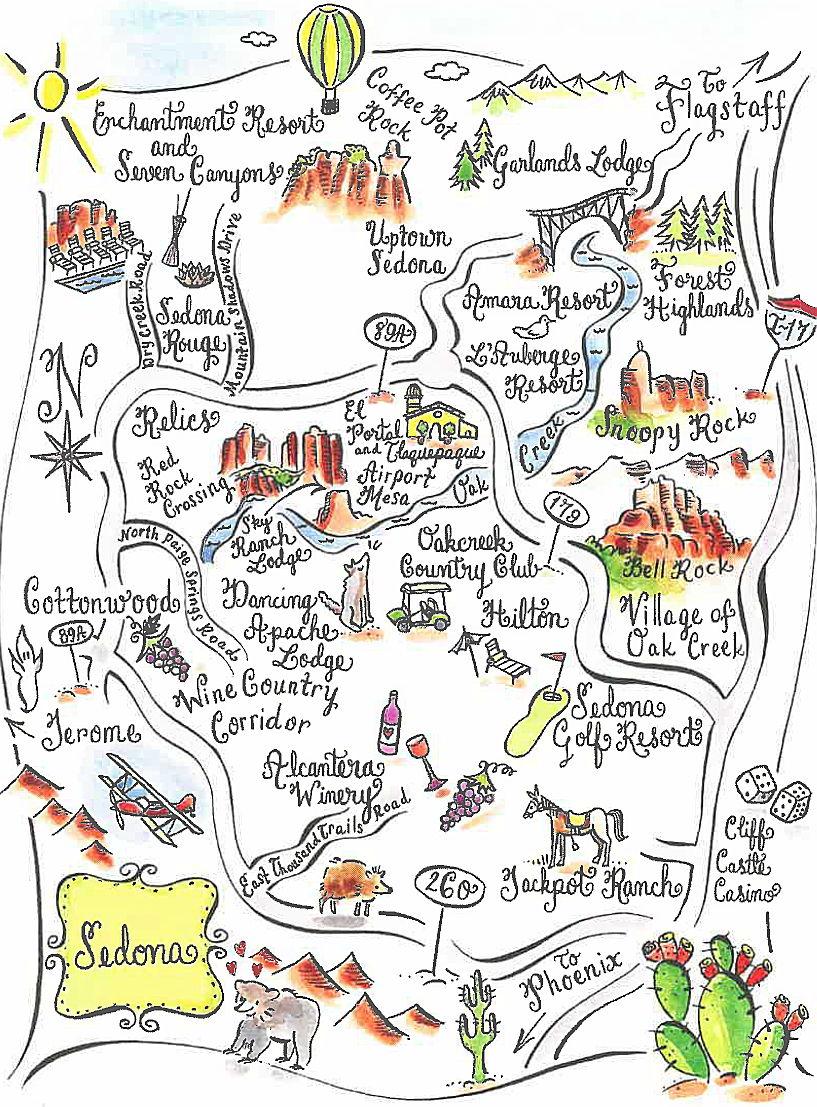 Coffee Pot
Rock
To
Flagstaff
Enchantment Resort
and
Seven Canyons
Garlands Lodge
Uptown
Sedona
Dry Creek Road
Sedona
Rouge
Mountain Shadows Drive
Amara Resort
Forest
Highlands
I-17
89A
L'Auberge
Resort
N
Relics
El
Portal
and Tlaquepaque
Airport
Mesa
Snoopy Rock
Red
Rock
Crossing
Oak
Creek
Sky
Ranch
Lodge
179
North Paige Springs Road
Oakcreek
Country Club
Bell Rock
Cottonwood
Dancing
Apache
Lodge
Hilton
Village of
Oak Creek
89A
Wine Country
Corridor
Jerome
Sedona
Golf Resort
Alcantera
Winery
East Thousand Trails Road
Cliff
Castle
Casino
260
Jackpot Ranch
Sedona
To
Phoenix